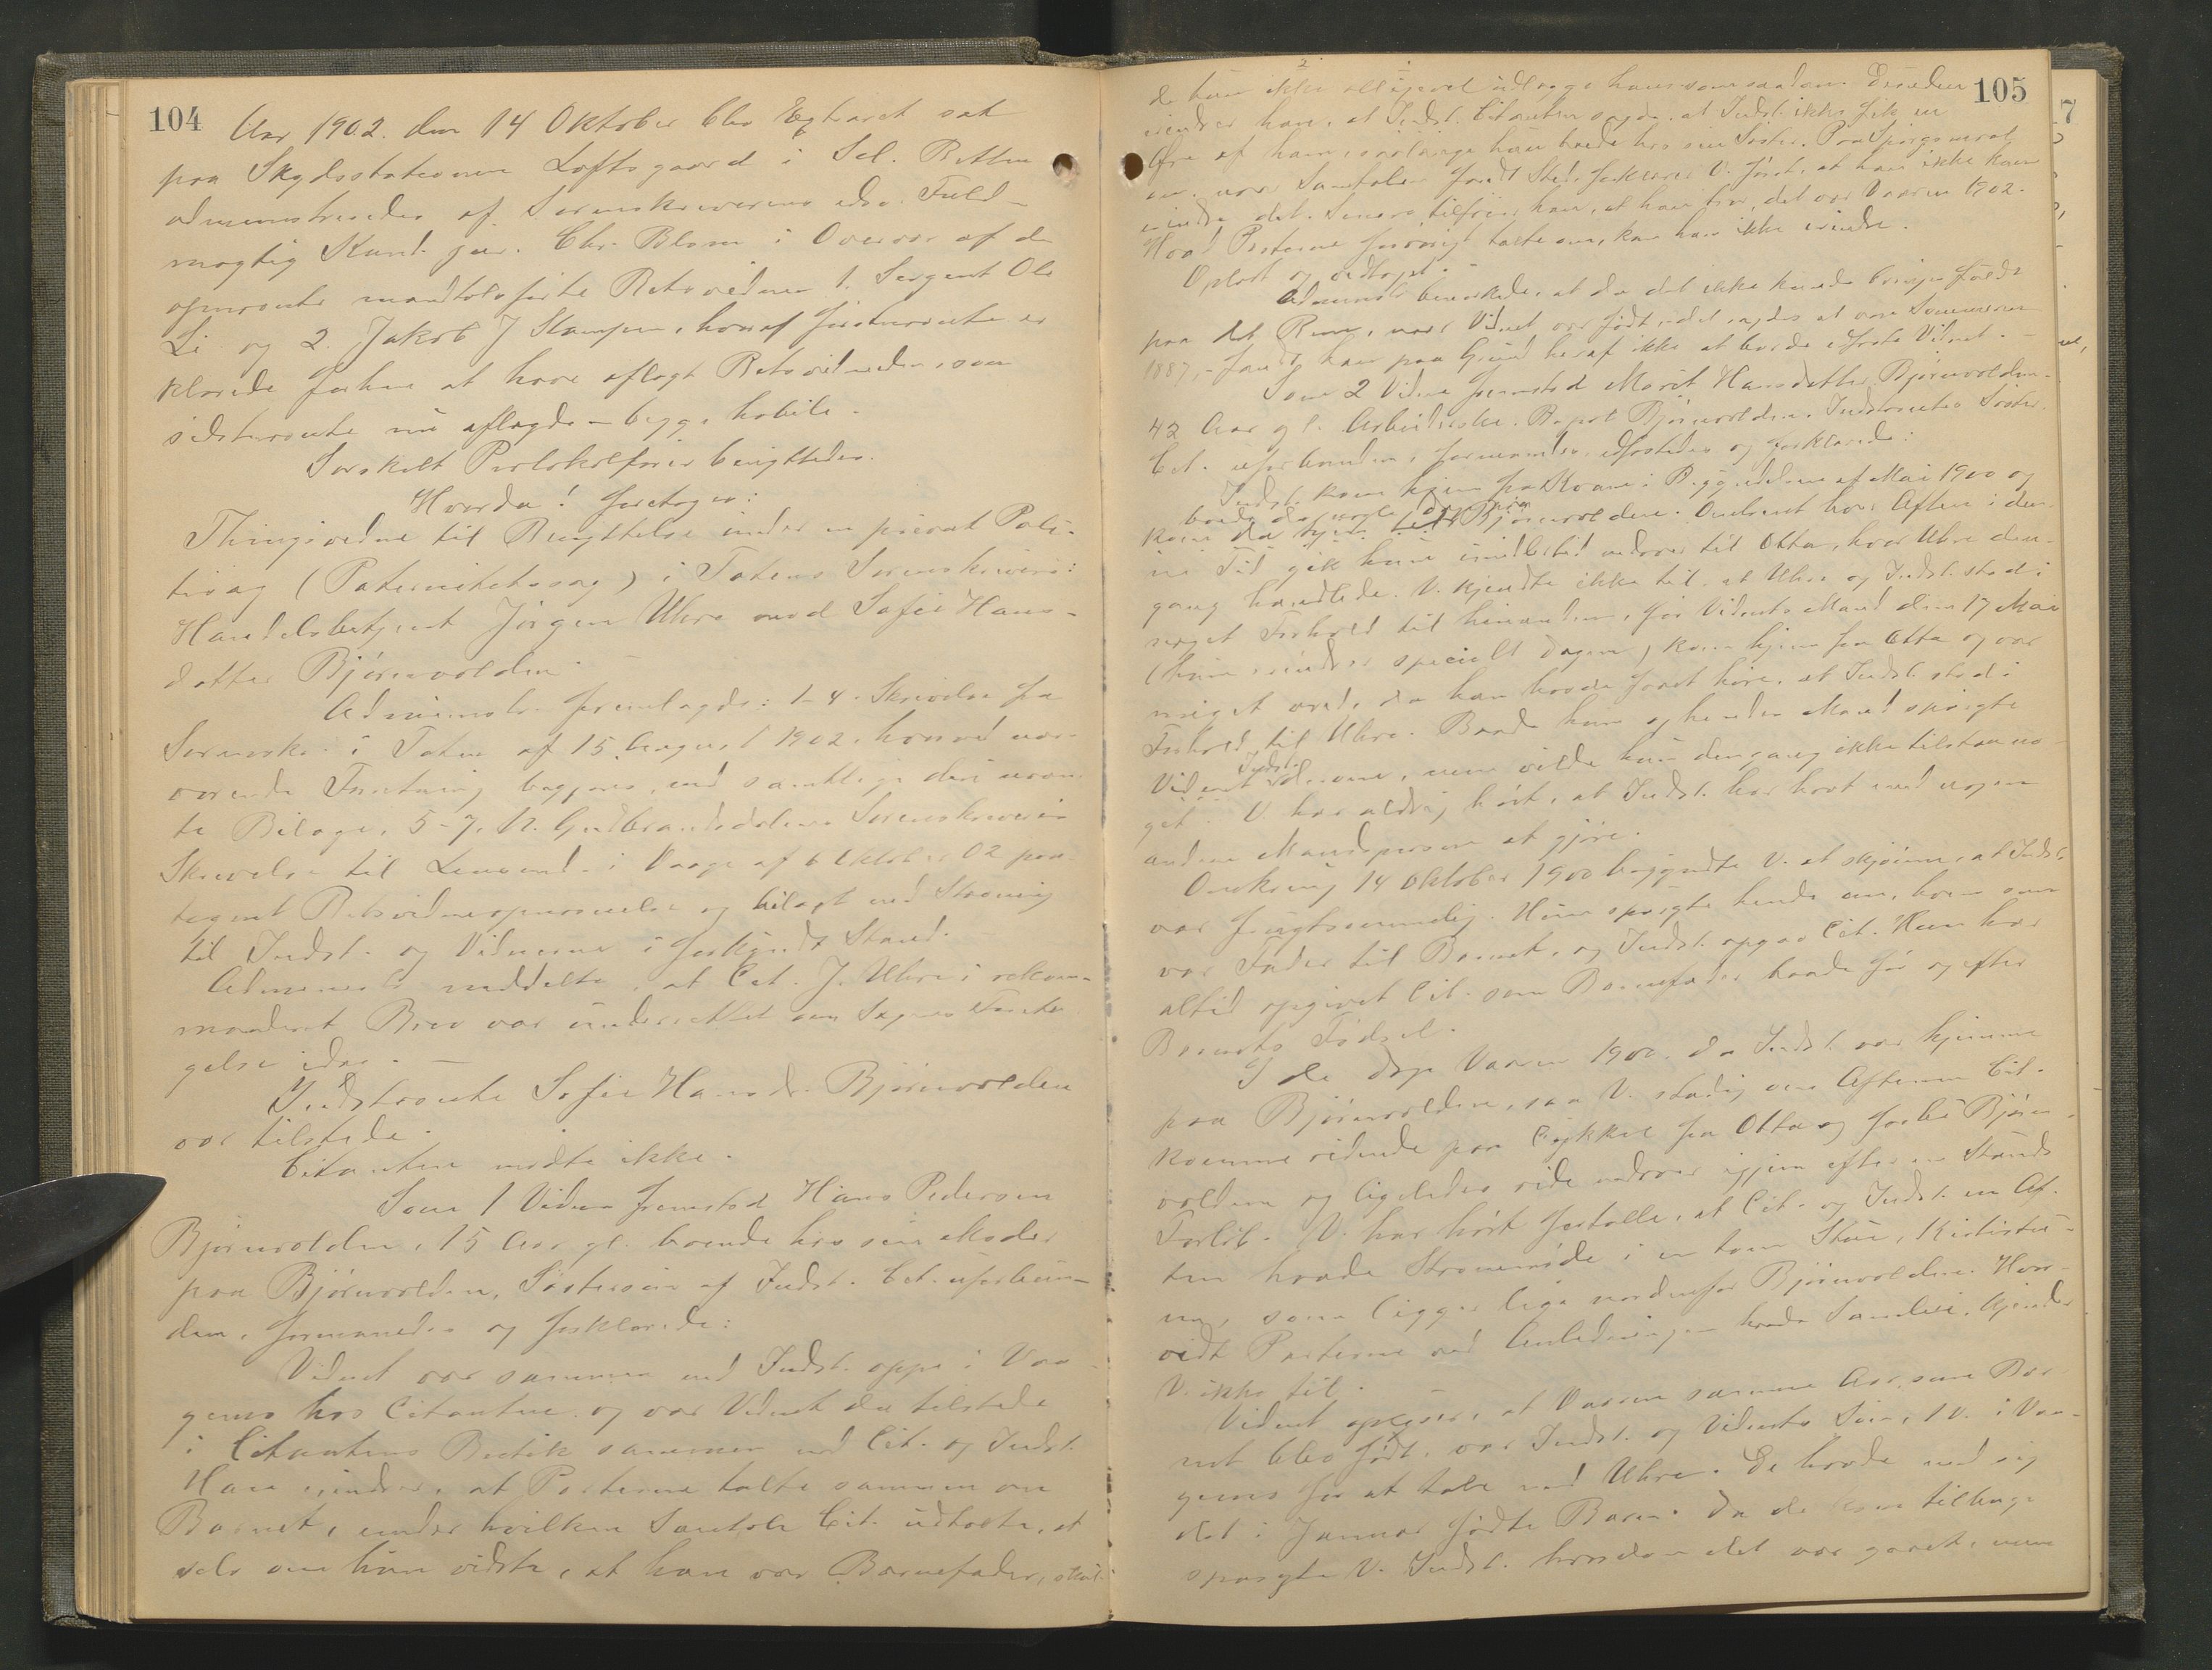 104
Aar 1902 den 14 Oktober blev Extraret sat
paa Skydsstationen Loftsgaard i Sel. Retten
administreredes af Sorenskriverens eds. Fuld-
mægtig Kand. jur. Chr. Blom i Overvær af de
opnævnte mandtalsførte Retsvidner 1. Sergent Ole
Li og 2. Jakob J Stampen, hvoraf førstnævnte er-
klærede forhen at have aflagt Retsvidneeden, som
sidstnævnte nu aflagde – begge habile.
Særskilt Protokolfører benyttedes.
Hvorda! foretoges:
Thingsvidne til Benyttelse under en privat Poli-
tisag (Paternitetssag) i Totens Sorenskriveri:
Handelsbetjent Jørgen Uhre mod Sofie Hans-
datter Bjørnvolden.
Administr. fremlagde: 1-4. Skrivelse fra
Sorenskr. i Toten af 15 August 1902, hvorved nær-
værende Forretning begjæres, med samtlige deri nævn-
te Bilage, 5-7. N. Gudbrandsdalens Sorenskriveris
Skrivelse til Lensmd. i Vaage af 6 Oktober 02 paa-
tegnet Retsvidneopnævnelse og bilagt med Stævning
til Indst. og Vidnerne i forkyndt Stand.
Administr. meddelte, at Cit. J. Uhre i rekom-
manderet Brev var underrettet om Sagens Foreta-
gelse idag. –
Indstævnte Sofie Hansd. Bjørnvolden
var tilstede.
Citanten mødte ikke.
Som 1 Vidne fremstod Hans Pedersen
Bjørnvolden, 15 Aar gl. boende hos sin Moder
paa Bjørnvolden, Søstersøn af Indst. Cit. uforbun-
den, formanedes og forklarede:
Vidnet var sammen med Indst. oppe i Vaa-
gens hos Citanten og var Vidnet da tilstede
i Citantens Butik sammen med Cit. og Indst.
Han erindrer, at Parterne talte sammen om
Barnet, under hvilken Samtale Cit. udtalte, at
selv om hun vidste, at han var Barnefader, skul-
105
de hun ikke alligevel udlægge ham som saadan. Desuden
erindrer han, at Indst. Citanten sagde, at Indst. ikke fik en
Øre af ham, saalænge hun boede hos sin Søster. Paa Spørgsmaal
om, naar Samtalen fandt Sted forklarer V. først, at han ikke kan
erindre det. Senere tilføier han, at han tror, det var Vaaren 1902.
Hvad Parterne forøvrigt talte om, kan han ikke erindre.
Oplæst og vedtaget. –
Administr. bemærkede, at da det ikke kunde bringes fuldt
paa det Rene, naar Vidnet var født, idet sagdes at være Sommeren
1887, – fandt han paa Grund heraf ikke at burde edfæste Vidnet. –
Som 2 Vidne fremstod Marit Hansdatter Bjørnvolden
42 Aar gl. Arbeiderske. B. paa Bjørnvolden. Indstævntes Søster.
Cit. uforbunden, formanedes, edfæstedes og forklarede:
Indst. kom hjem fra Kvam i Begyndelsen af Mai 1900 og
boede da
kom da hjem til Bjørnvolden. Omtrent hver Aften i den-
ne Tid gik hun imidlertid nedover til Otta, hvor Uhre den-
gang handlede. V. kjendte ikke til, at Uhre og Indst. stod i
noget Forhold til hinanden, før Vidnets Mand den 17 Mai
(hun erindrer specielt Dagen) kom hjem fra Otta og var
meget vred, da han havde faaet høre, at Indst. stod i
Forhold til Uhre. Baade hun og hendes Mand spurgte
Indst.
Vidnet derom, men vilde hun dengang ikke tilstaa no-
get. V. har aldrig hørt, at Indst. har havt med nogen
anden Mandsperson at gjøre.
Omkring 14 Oktober 1900 begyndte V. at skjønne, at Indst.
var frugtsommelig. Hun spurgte hende om, hvem som
var Fader til Barnet, og Indst. opgav Cit. Hun har
altid opgivet Cit. som Barnefader baade før og efter
Barnets Fødsel.
I de Dage Vaaren 1900, da Indst. var hjemme
paa Bjørnvolden, saa V. stadig om Aftenen Cit.
komme ridende paa Cykkel fra Otta og forbi Bjørn-
volden og ligeledes ride nedover igjen efter en Stunds
Forløb. V. har hørt fortælle, at Cit. og Indst. en Af-
ten havde Stevnemøde i en tom Stue, Krististu-
en, som ligger lige nordenfor Bjørnvolden. Hvor-
vidt Parterne ved Anledningen havde Samleie, kjender
V. ikke til. –
Vidnet oplyser, at Vaaren samme Aar, som Bar-
net blev født, var Indst. og Vidnets Søn, 1 V. i Vaa-
gens for at tale med Uhre. De havde med sig
det i Januar fødte Barn. Da de kom tilbage
spurgte V. Indst. hvordan det var gaaet, men
7